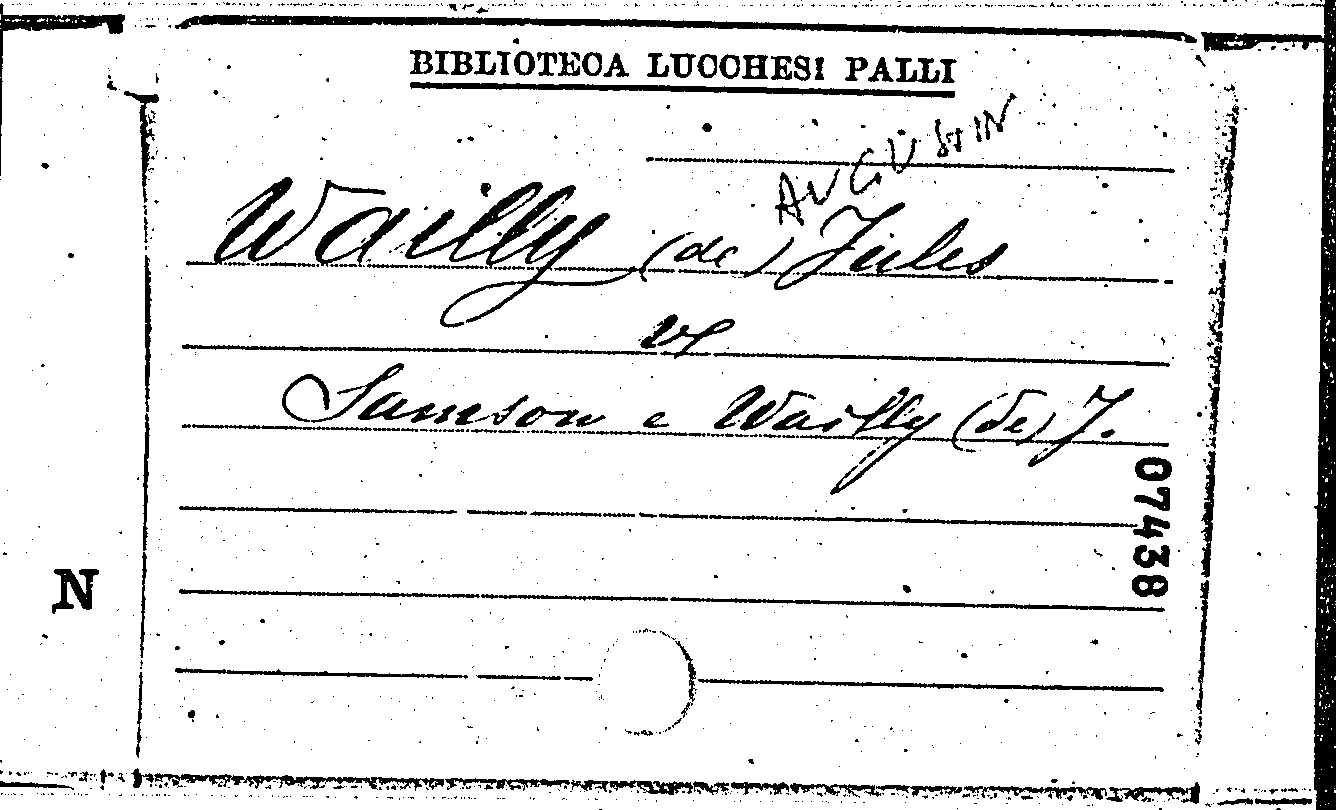 BIBLIOTECA LUCCHESI PALLI
AUGUSTIN
Wailly (de) Jules
vs
Samson e Wailly (de) J.
07438
N